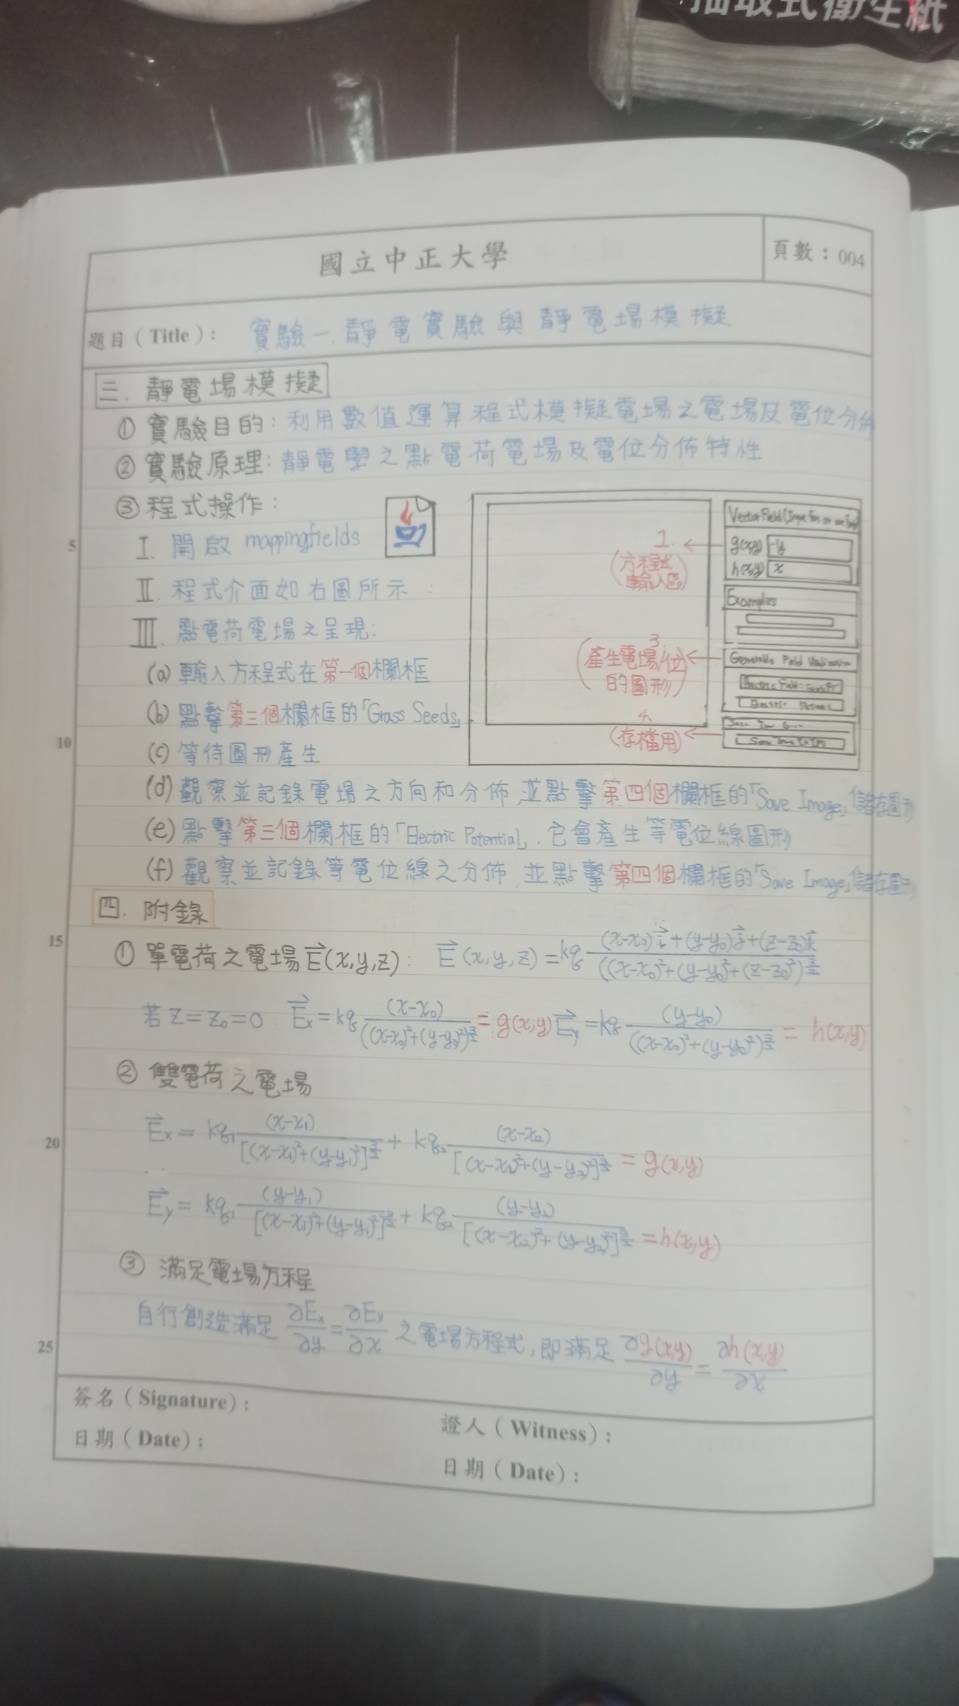 抽取式衛生紙
國立中正大學
頁數：004
題目（Title）： 實驗一. 靜電實驗與靜電場模擬
三. 靜電場模擬
① 實驗目的：利用數值運算程式模擬電場之電場及電位分佈
② 實驗原理：靜電學之點電荷電場及電位分佈特性
③ 程式操作：
I. 開啟 mappingfields
II. 程式介面如右圖所示：
III. 點電荷電場之呈現：
(a) 輸入方程式在第一個欄框
(b) 點擊第三個欄框的「Grass Seeds」
(c) 等待圖形產生
1.
(方程式輸入區)
3
(產生電場/位的圖形)
4
(存檔用)
g(x,y) -y
h(x,y) x
Examples
(d) 觀察並記錄電場之方向和分佈,並點擊第四個欄框的「Save Image」儲存圖形
(e) 點擊第三個欄框的「Electric Potential」,它會產生等電位線圖形
(f) 觀察並記錄等電位線之分佈,並點擊第四個欄框的「Save Image」儲存圖形
四. 附錄
① 單電荷之電場 E⃗(x,y,z)： E⃗(x,y,z)=kq ((x-x₀)i⃗+(y-y₀)j⃗+(z-z₀)k⃗)/((x-x₀)²+(y-y₀)²+(z-z₀)²)^(3/2)
若 z=z₀=0 E⃗x=kq (x-x₀)/((x-x₀)²+(y-y₀)²)^(3/2) = g(x,y) E⃗y=kq (y-y₀)/((x-x₀)²+(y-y₀)²)^(3/2) = h(x,y)
② 雙電荷之電場
E⃗x = kq₁ (x-x₁)/[(x-x₁)²+(y-y₁)²]^(3/2) + kq₂ (x-x₂)/[(x-x₂)²+(y-y₂)²]^(3/2) = g(x,y)
E⃗y = kq₁ (y-y₁)/[(x-x₁)²+(y-y₁)²]^(3/2) + kq₂ (y-y₂)/[(x-x₂)²+(y-y₂)²]^(3/2) = h(x,y)
③ 滿足電場方程
自行創造滿足 ∂Ex/∂y = ∂Ey/∂x 之電場方程式,即滿足 ∂g(x,y)/∂y = ∂h(x,y)/∂x
5
10
15
20
25
簽名（Signature）：
日期（Date）：
證人（Witness）：
日期（Date）：